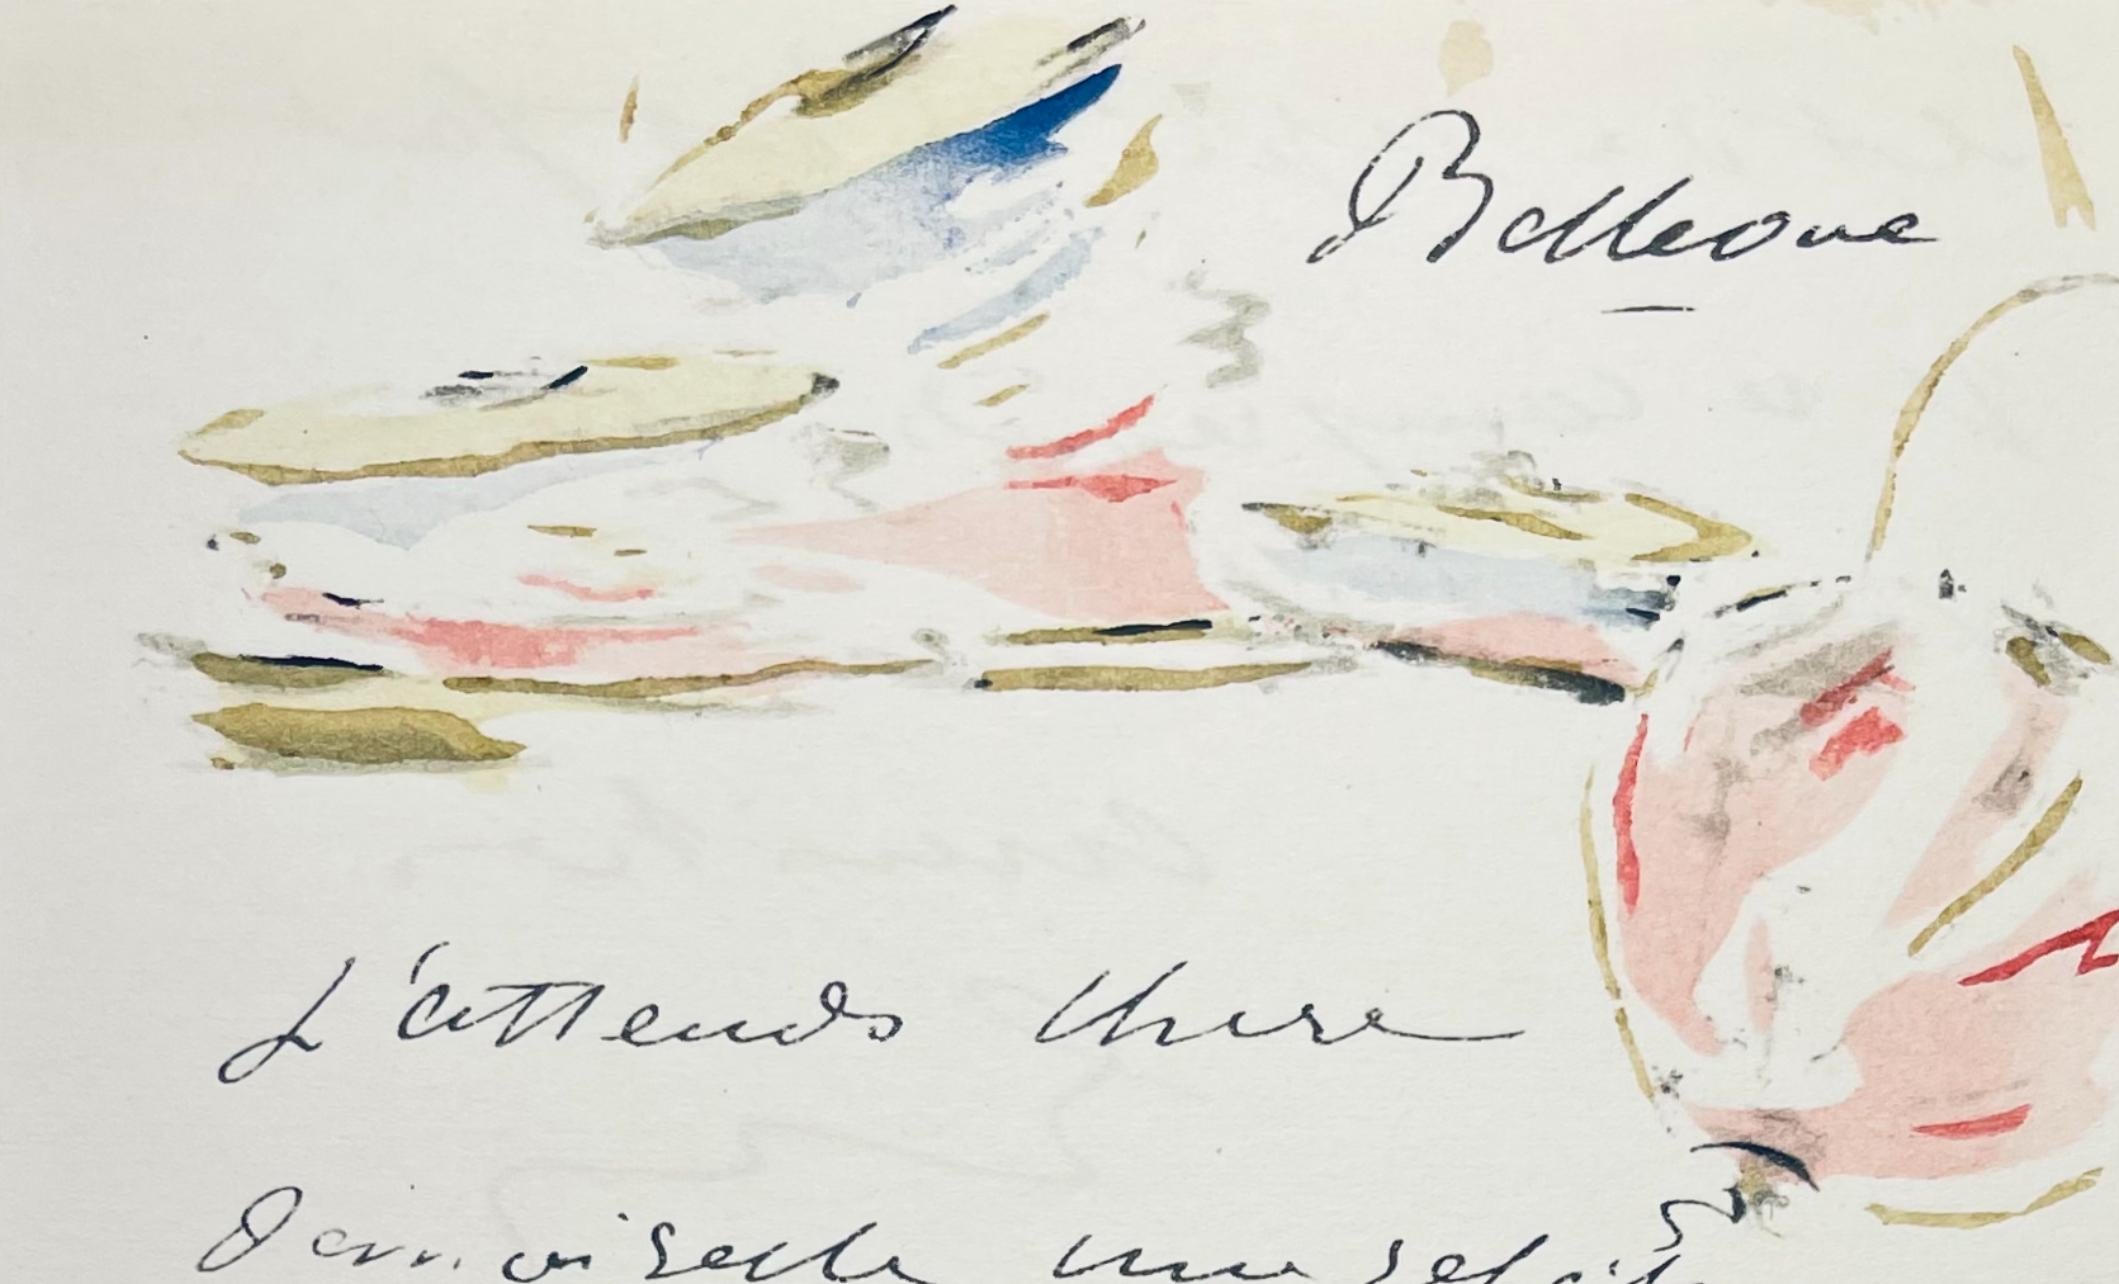 Bellevue
J'attends chère
Demoiselle une